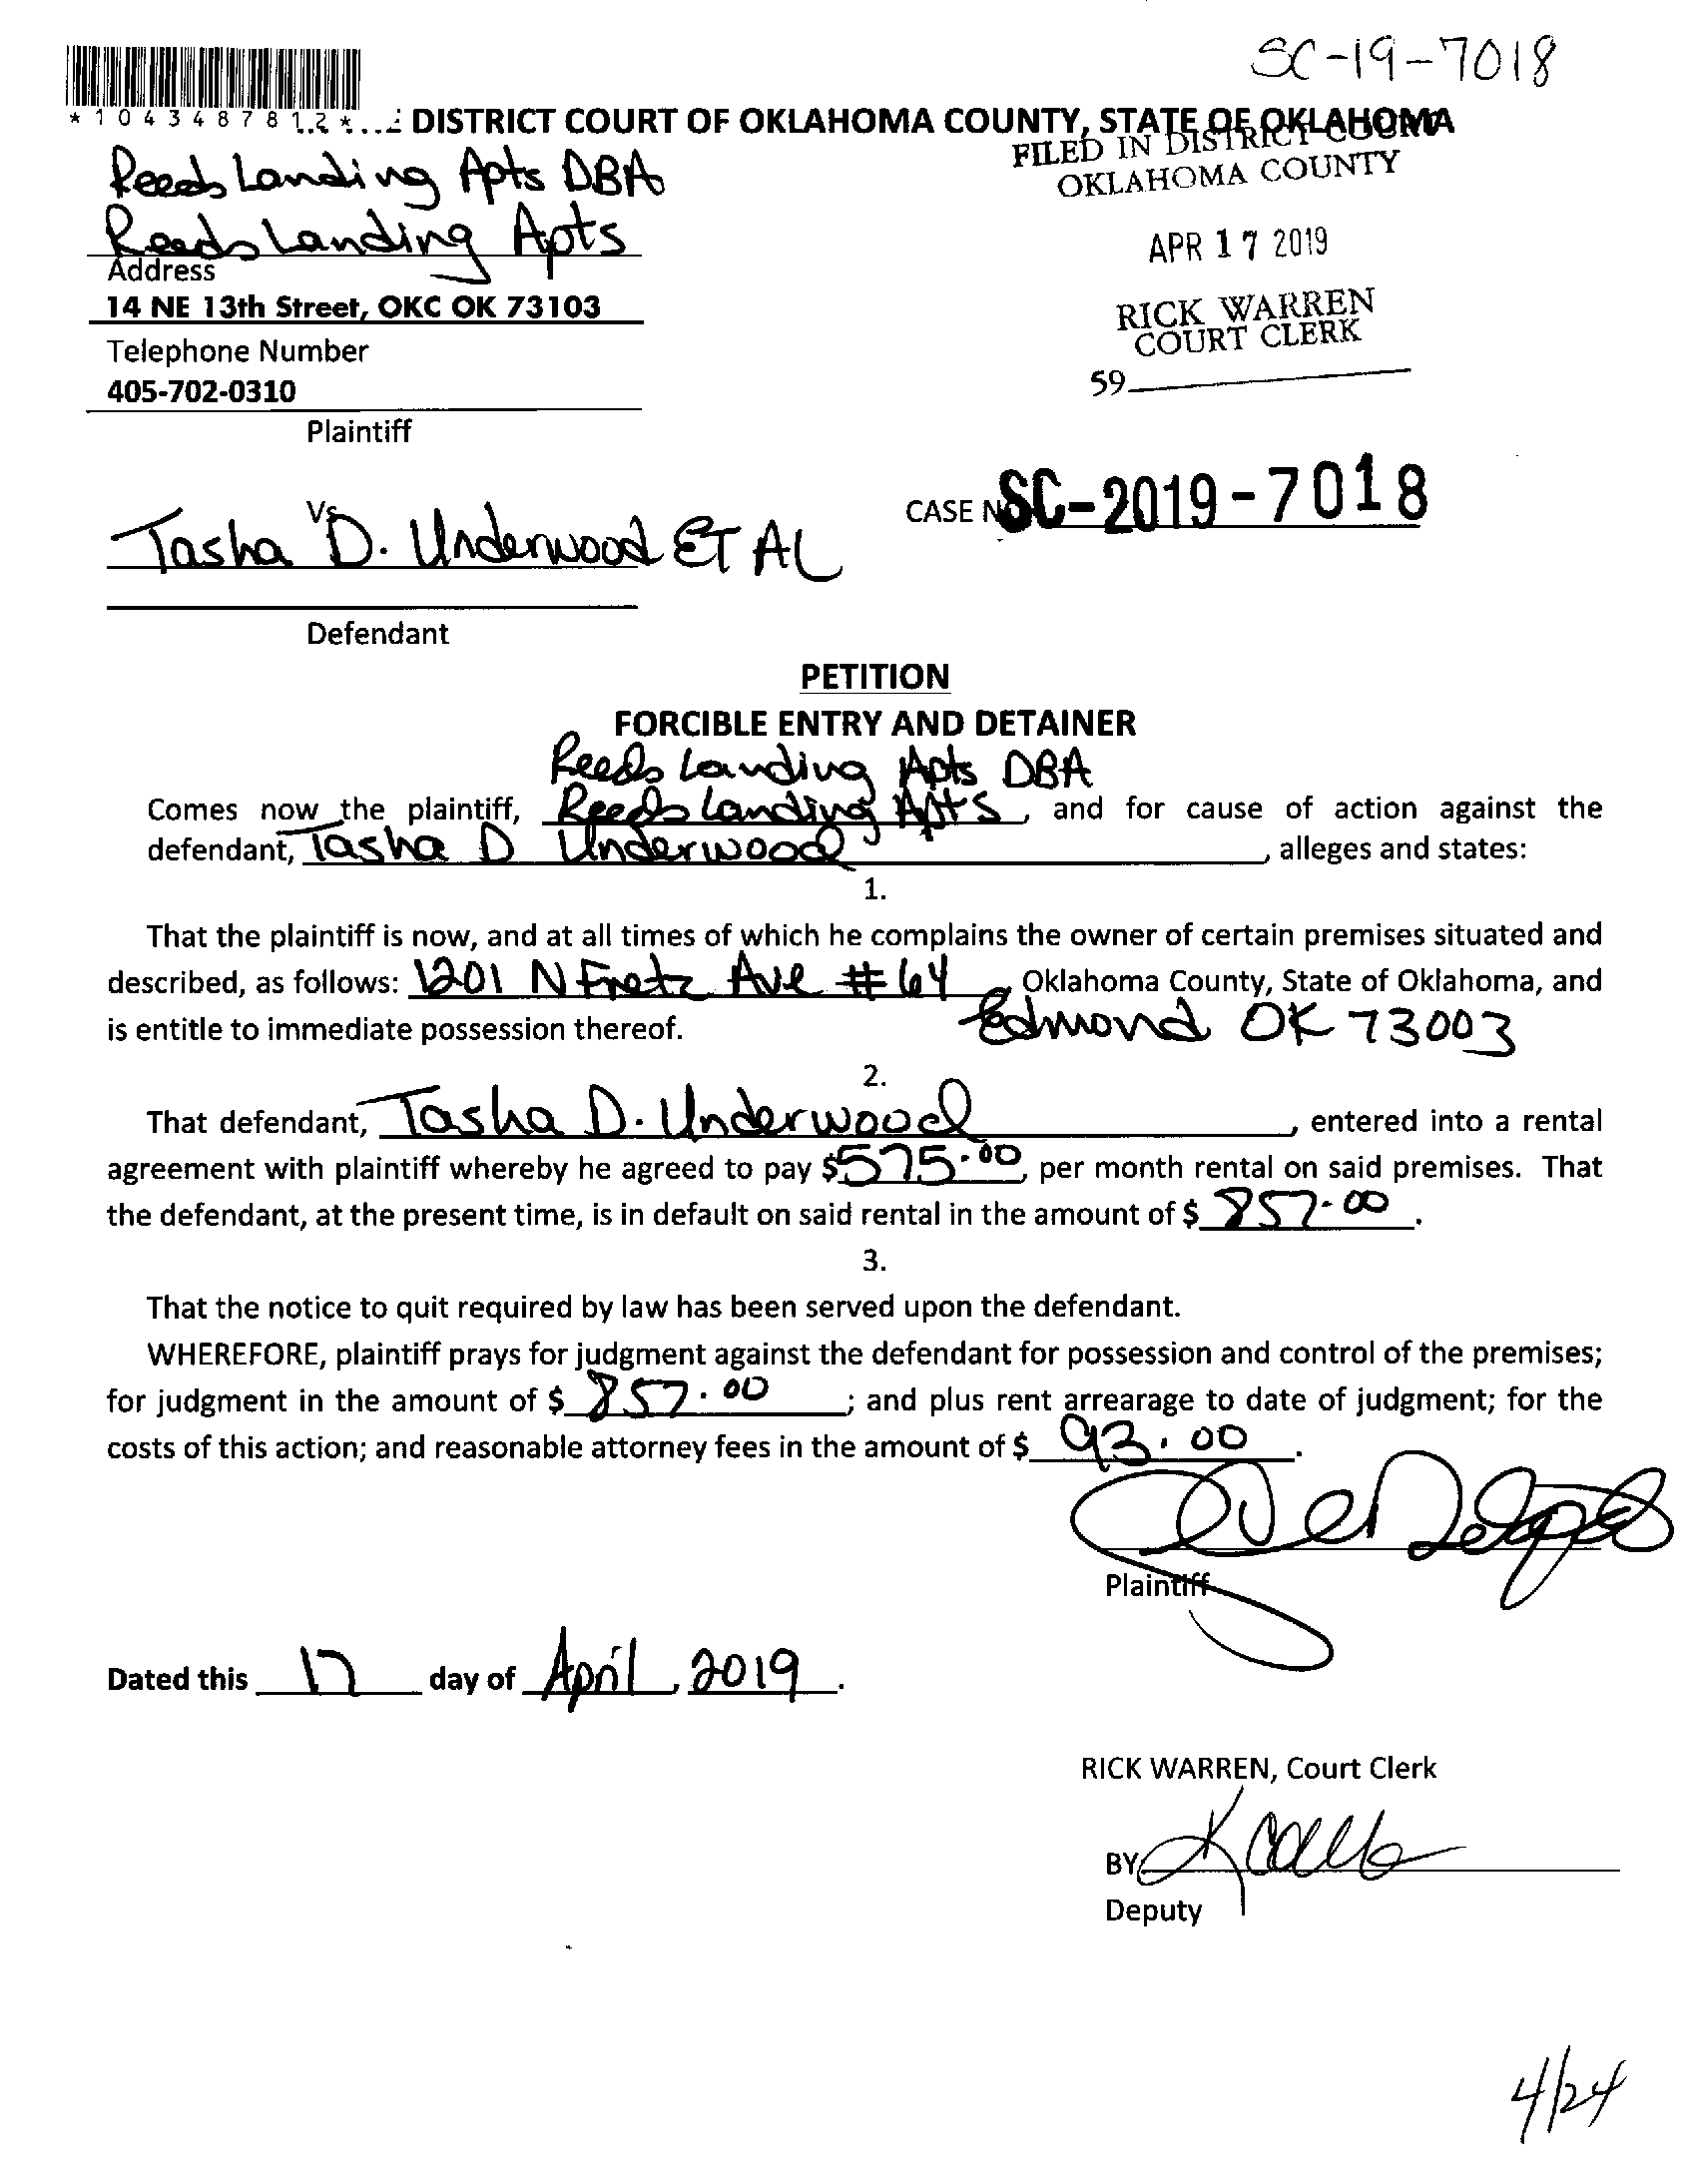 SC-19-7018
* 1 0 4 3 4 8 7 8 1 2 *
DISTRICT COURT OF OKLAHOMA COUNTY, STATE OF OKLAHOMA
FILED IN DISTRICT COURT
OKLAHOMA COUNTY
Reeds Landing Apts DBA
Reeds Landing Apts
APR 17 2019
Address
14 NE 13th Street, OKC OK 73103
RICK WARREN
COURT CLERK
Telephone Number
59
405-702-0310
Plaintiff
CASE N SC-2019-7018
Vs
Tasha D. Underwood ET AL
Defendant
PETITION
FORCIBLE ENTRY AND DETAINER
Reeds Landing Apts DBA
Comes now the plaintiff, Reeds Landing Apts, and for cause of action against the
defendant, Tasha D Underwood, alleges and states:
1.
That the plaintiff is now, and at all times of which he complains the owner of certain premises situated and
described, as follows: 1201 N Fretz Ave #64 Oklahoma County, State of Oklahoma, and
is entitle to immediate possession thereof. Edmond OK 73003
2.
That defendant, Tasha D. Underwood, entered into a rental
agreement with plaintiff whereby he agreed to pay $575.00, per month rental on said premises. That
the defendant, at the present time, is in default on said rental in the amount of $ 857.00.
3.
That the notice to quit required by law has been served upon the defendant.
WHEREFORE, plaintiff prays for judgment against the defendant for possession and control of the premises;
for judgment in the amount of $ 857.00; and plus rent arrearage to date of judgment; for the
costs of this action; and reasonable attorney fees in the amount of $ 93.00.
Plaintiff
Dated this 17 day of April, 2019.
RICK WARREN, Court Clerk
BY
Deputy
4/24